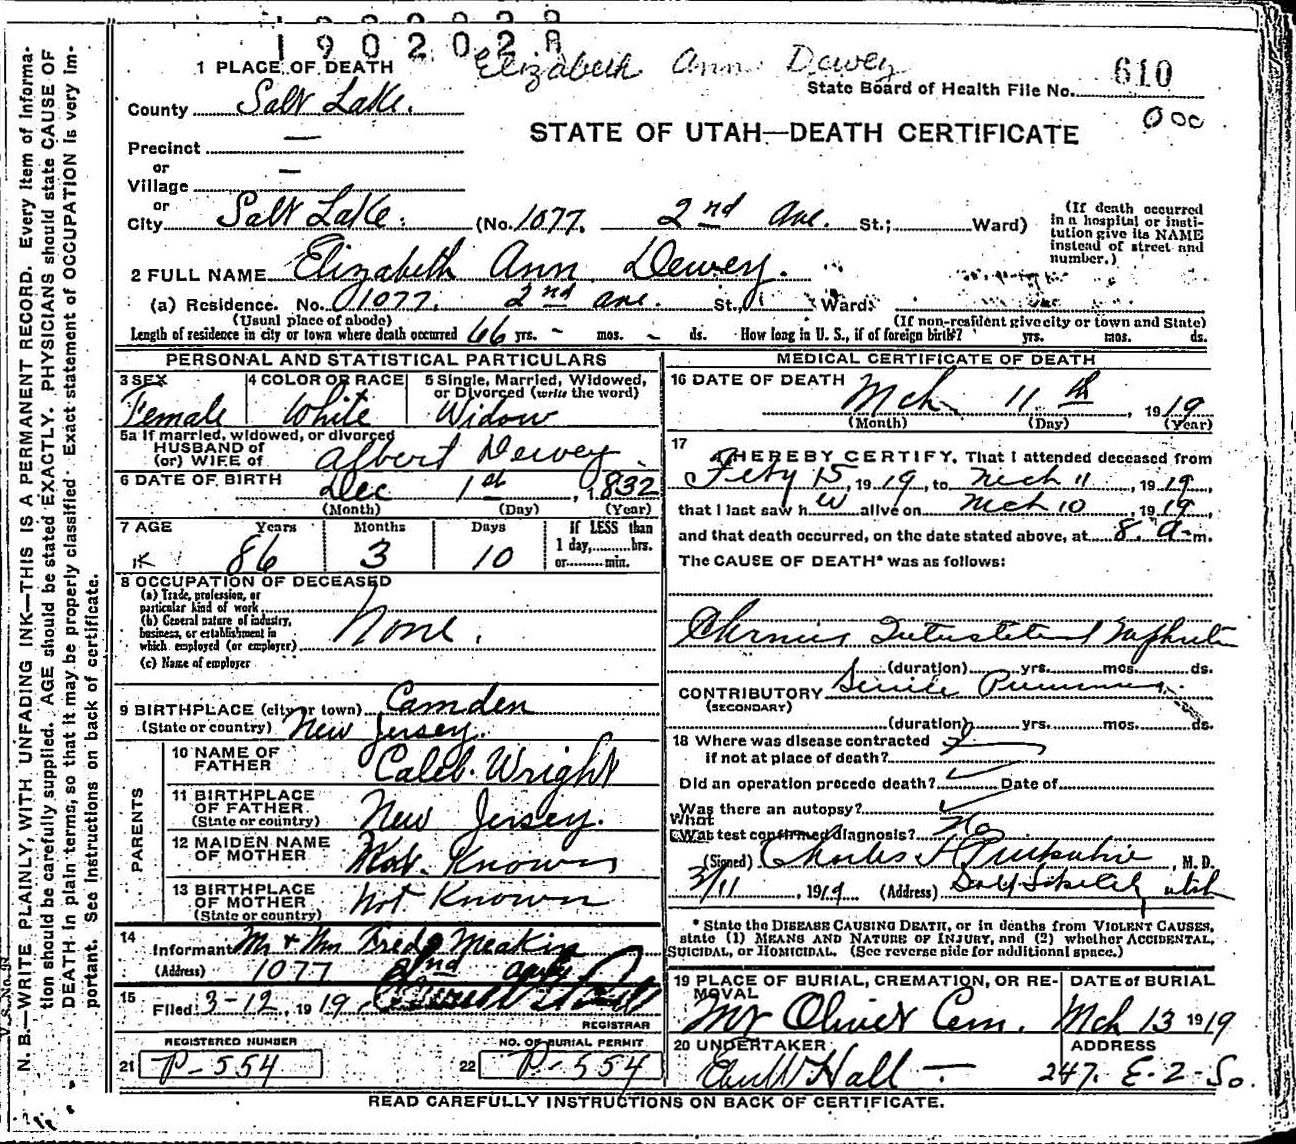 1902028
Elizabeth Ann Dewey
1 PLACE OF DEATH
State Board of Health File No. 610
County Salt Lake.
000
STATE OF UTAH—DEATH CERTIFICATE
Precinct —
or
Village —
or
City Salt Lake. (No. 1077. 2nd Ave. St.; Ward)
(If death occurred in a hospital or institution give its NAME instead of street and number.)
2 FULL NAME Elizabeth Ann Dewey.
(a) Residence. No. 1077. 2nd ave. St., Ward.
(Usual place of abode) (If non-resident give city or town and State)
Length of residence in city or town where death occurred 66 yrs. - mos. - ds. How long in U. S., if of foreign birth? yrs. mos. ds.
PERSONAL AND STATISTICAL PARTICULARS
3 SEX Female
4 COLOR OR RACE White
5 Single, Married, Widowed, or Divorced (write the word) Widow
5a If married, widowed, or divorced
HUSBAND of
(or) WIFE of Albert Dewey
6 DATE OF BIRTH Dec 1st, 1832
(Month) (Day) (Year)
7 AGE Years Months Days If LESS than
86 3 10 1 day,........hrs.
or........min.
8 OCCUPATION OF DECEASED
(a) Trade, profession, or
particular kind of work
(b) General nature of industry,
business, or establishment in
which employed (or employer) None.
(c) Name of employer
9 BIRTHPLACE (city or town) Camden
(State or country) New Jersey.
PARENTS
10 NAME OF FATHER Caleb. Wright
11 BIRTHPLACE OF FATHER (State or country) New Jersey.
12 MAIDEN NAME OF MOTHER Not. Known
13 BIRTHPLACE OF MOTHER (State or country) Not Known
14
Informant Mr & Mrs Fred Meakin
(Address) 1077 2nd
15
Filed 3-12, 1919
REGISTRAR
REGISTERED NUMBER
21 P-554
NO. OF BURIAL PERMIT
22 P-554
MEDICAL CERTIFICATE OF DEATH
16 DATE OF DEATH Mch 11th, 1919
(Month) (Day) (Year)
17
I HEREBY CERTIFY, That I attended deceased from
Feby 15, 1919, to Mch 11, 1919,
that I last saw h er alive on Mch 10, 1919,
and that death occurred, on the date stated above, at 8. a. m.
The CAUSE OF DEATH* was as follows:
Chronic Interstitial Nephritis
(duration) yrs. mos. ds.
CONTRIBUTORY Senile
(SECONDARY)
(duration) yrs. mos. ds.
18 Where was disease contracted
if not at place of death?
Did an operation precede death? Date of
Was there an autopsy?
What
test confirmed diagnosis? No
(Signed) Charles F, M. D.
3/11, 1919 (Address) Salt Lake City Utah
* State the DISEASE CAUSING DEATH, or in deaths from VIOLENT CAUSES,
state (1) MEANS AND NATURE OF INJURY, and (2) whether ACCIDENTAL,
SUICIDAL, or HOMICIDAL. (See reverse side for additional space.)
19 PLACE OF BURIAL, CREMATION, OR REMOVAL
Mt Olivet Cem.
DATE of BURIAL
Mch 13 1919
20 UNDERTAKER
Hall —
ADDRESS
247. E-2-So.
READ CAREFULLY INSTRUCTIONS ON BACK OF CERTIFICATE.
N. B.—WRITE PLAINLY, WITH UNFADING INK—THIS IS A PERMANENT RECORD. Every item of informa-
tion should be carefully supplied. AGE should be stated EXACTLY. PHYSICIANS should state CAUSE OF
DEATH in plain terms, so that it may be properly classified. Exact statement of OCCUPATION is very im-
portant. See instructions on back of certificate.